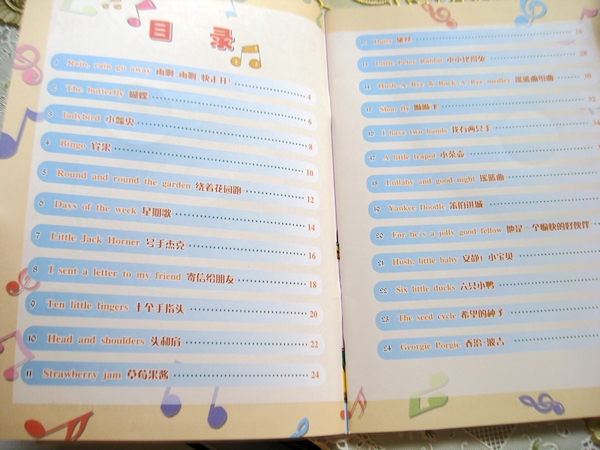 目 录
1 Rain, rain go away 雨啊 雨啊 快走开 4
2 The butterfly 蝴蝶 6
3 Ladybird 小瓢虫 8
4 Bingo 宾果 10
5 Round and round the garden 绕着花园跑 12
6 Days of the week 星期歌 14
7 Little Jack Horner 号手杰克 16
8 I sent a letter to my friend 寄信给朋友 18
9 Ten little fingers 十个手指头 20
10 Head and shoulders 头和肩 22
11 Strawberry jam 草莓果酱 24
26
13 Little Peter Rabbit 小小比得兔 28
14 Hush-A-Bye & Rock-A-Bye medley 摇篮曲组曲 30
15 Shoo fly 32
16 I have two hands 我有两只手 34
17 A little teapot 小茶壶
18 Lullaby and good night 摇篮曲
19 Yankee Doodle 笨伯进城
20 For he's a jolly good fellow 他是一个愉快的好伙伴
21 Hush, little baby 安静！小宝贝
22 Six little ducks 六只小鸭
23 The seed cycle 希望的种子
24 Georgie Porgie 乔治·波吉